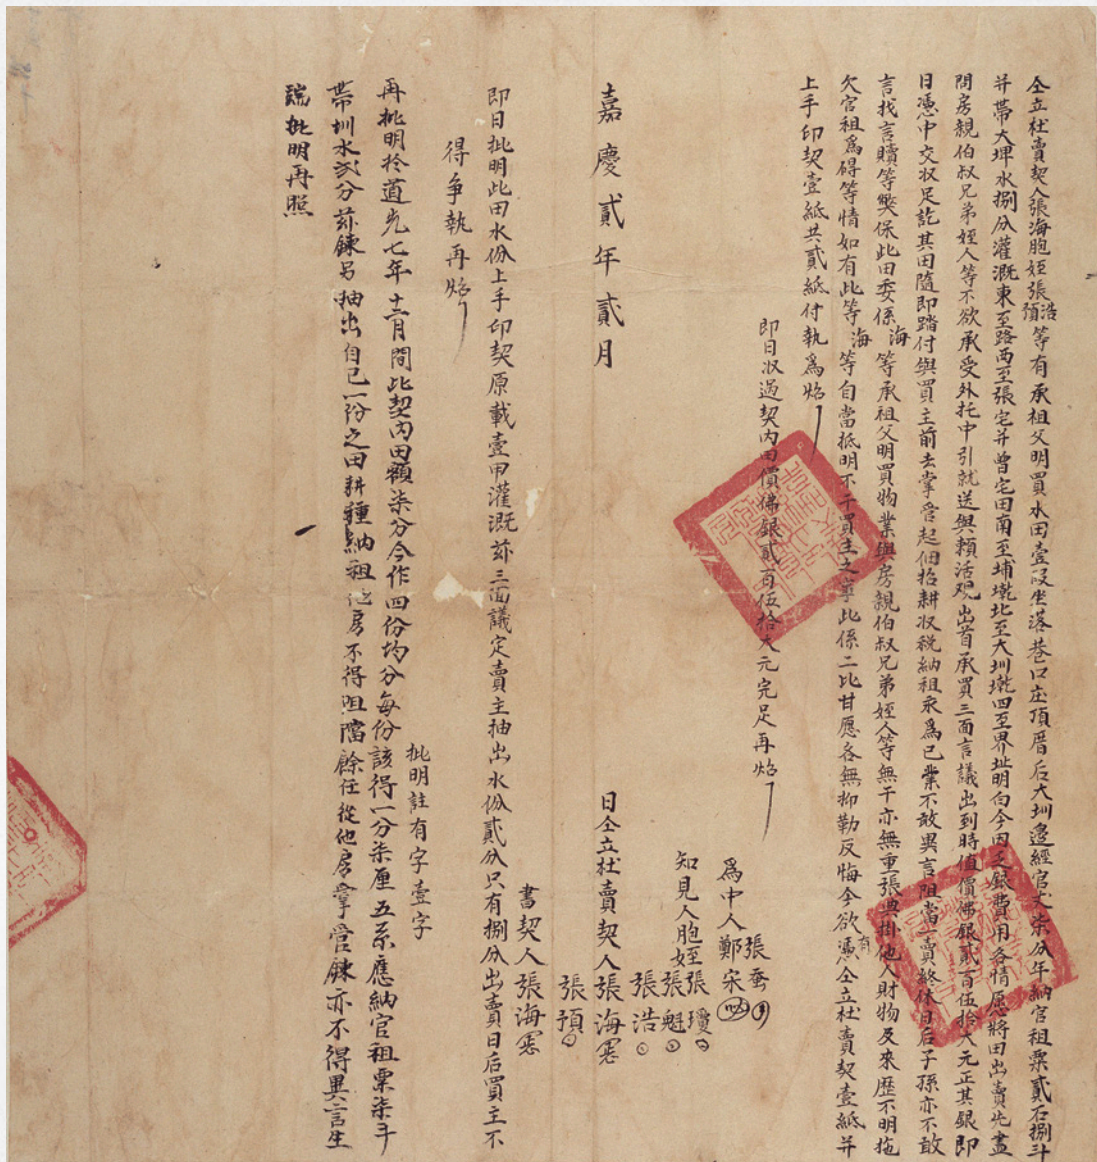 仝立杜賣契人張海胞姪張浩預等有承祖父明買水田壹段坐落巷口庄頂厝后大圳邊經官丈柒分年納官租粟貳石捌斗
并帶大埤水捌分灌溉東至路西至張宅并曾宅田南至埔墘北至大圳墘四至界址明白今因乏銀費用各情愿將田出賣先盡
問房親伯叔兄弟姪人等不欲承受外托中引就送與賴活观出首承買三面言議出到時值價佛銀貳百伍拾大元正其銀即
日憑中交收足訖其田隨即踏付與買主前去掌管起佃招耕收稅納租永為己業不敢異言阻當一賣終休日后子孫亦不敢
言找言贖等弊保此田委係海等承祖父明買物業與房親伯叔兄弟姪人等無干亦無重張典掛他人財物及來歷不明拖
欠官租為碍等情如有此等海等自當抵明不干買主之事此係二比甘愿各無抑勒反悔今欲有憑仝立杜賣契壹紙并
上手印契壹紙共貳紙付執為炤
即日收過契內田價佛銀貳百伍拾大元完足再炤
為中人鄭宋 張蚕
知見人胞姪張瓊
張魁
張浩
嘉慶貳年貳月 日仝立杜賣契人張海
張預
書契人張海
即日批明此田水份上手印契原載壹甲灌溉茲三面議定賣主抽出水份貳分只有捌分出賣日后買主不
得爭執再炤
批明註有字壹字
再批明於道光七年十二月間此契內田額柒分今作四份均分每份該得一分柒厘五系應納官租粟柒斗
帶圳水弍分茲鍊另抽出自己一份之田耕種納租他房不得阻擋餘任從他房掌管鍊亦不得異言生
端批明再照